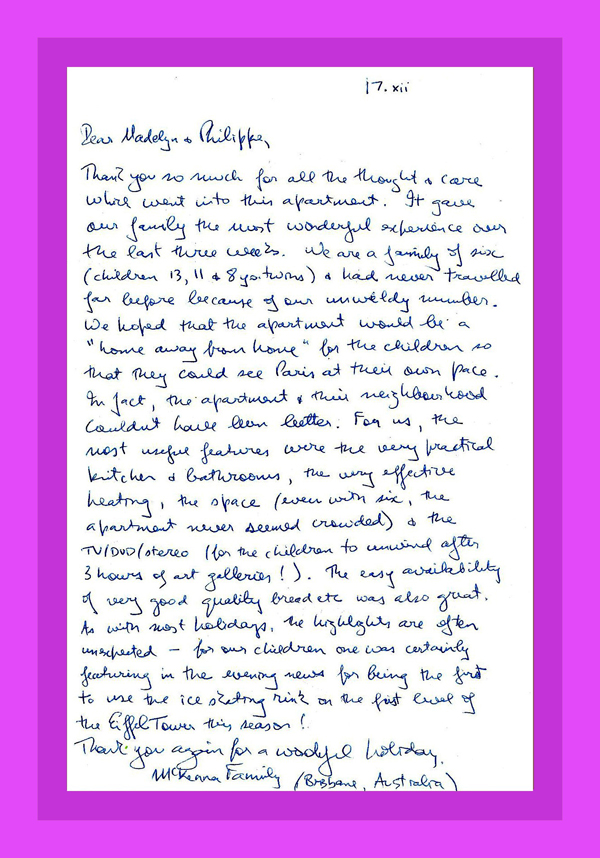 17. xii
Dear Madelyn & Philippe,
Thank you so much for all the thought & care
which went into this apartment. It gave
our family the most wonderful experience over
the last three weeks. We are a family of six
(children 13, 11 & 8 yo twins) & had never travelled
far before because of our unwieldy number.
We hoped that the apartment would be a
"home away from home" for the children so
that they could see Paris at their own pace.
In fact, the apartment & this neighbourhood
couldn't have been better. For us, the
most useful features were the very practical
kitchen & bathrooms, the very effective
heating, the space (even with six, the
apartment never seemed crowded) & the
TV/DVD/stereo (for the children to unwind after
3 hours of art galleries!). The easy availability
of very good quality bread etc was also great.
As with most holidays, the highlights are often
unexpected – for our children one was certainly
featuring in the evening news for being the first
to use the ice skating rink on the first level of
the Eiffel Tower this season!
Thank you again for a wonderful holiday.
McKenna Family (Brisbane, Australia)